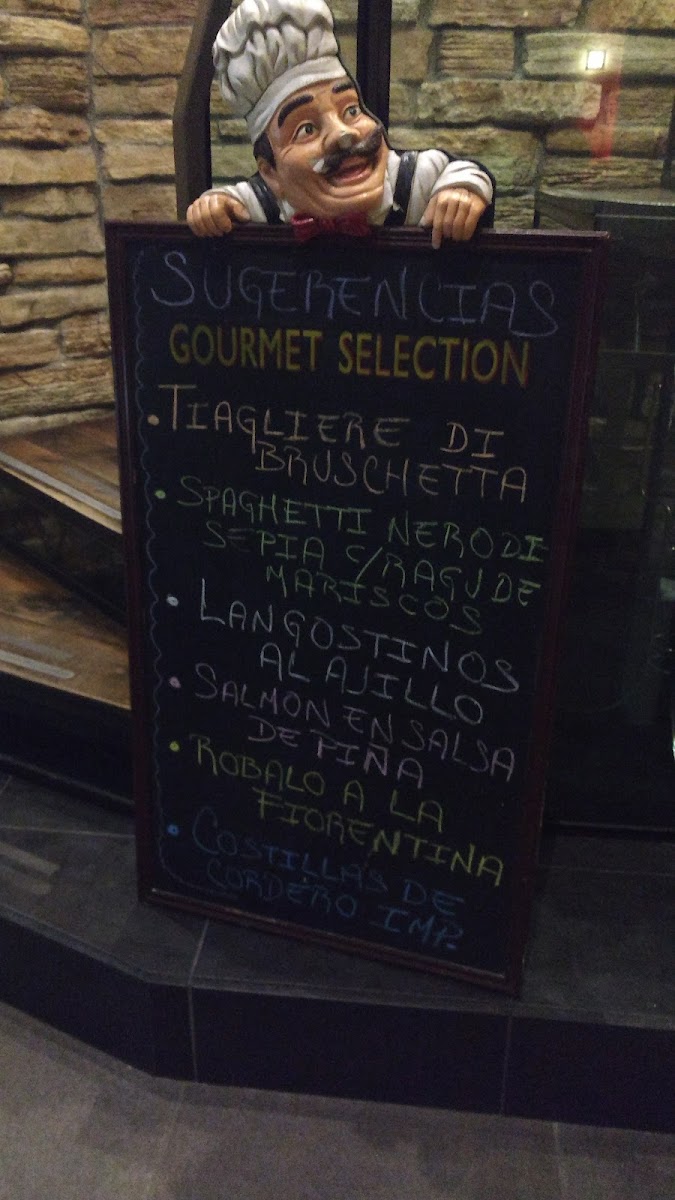 SUGERENCIAS
GOURMET SELECTION
• TIAGLIERE DI
BRUSCHETTA
• SPAGHETTI NERO DI
SEPIA C/RAGU DE
MARISCOS
• LANGOSTINOS
AL AJILLO
• SALMON EN SALSA
DE PIÑA
• ROBALO A LA
FIORENTINA
• COSTILLAS DE
CORDERO IMP.